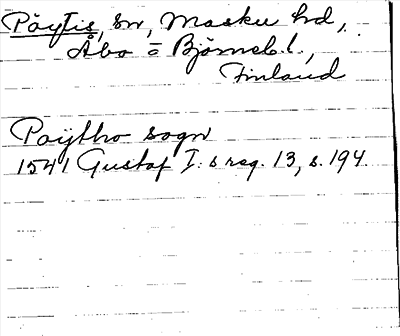 Pöytis, sn, Masku hd,
Åbo = Björneb. l.,
Finland
Poÿtho sogn
1541 Gustaf I: s reg. 13, s. 194.